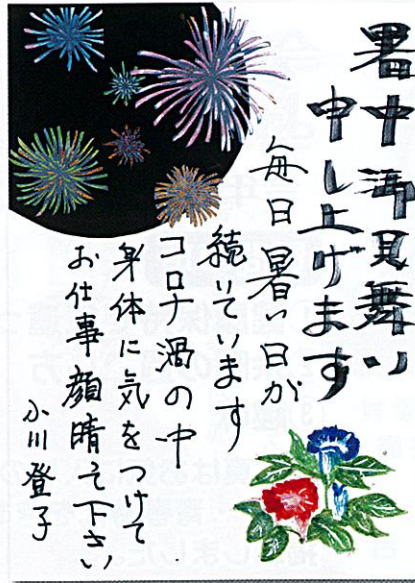 暑中御見舞い
申し上げます
毎日暑い日が
続いています
コロナ渦の中
身体に気をつけて
お仕事顔晴て下さい
小川登子